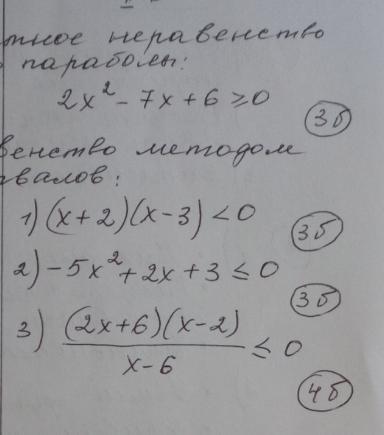 неравенство
параболы:
2x² - 7x + 6 ≥ 0
3б
методом
1) (x+2)(x-3) < 0
3б
2) -5x² + 2x + 3 ≤ 0
3б
3) (2x+6)(x-2)
x-6
≤ 0
4б